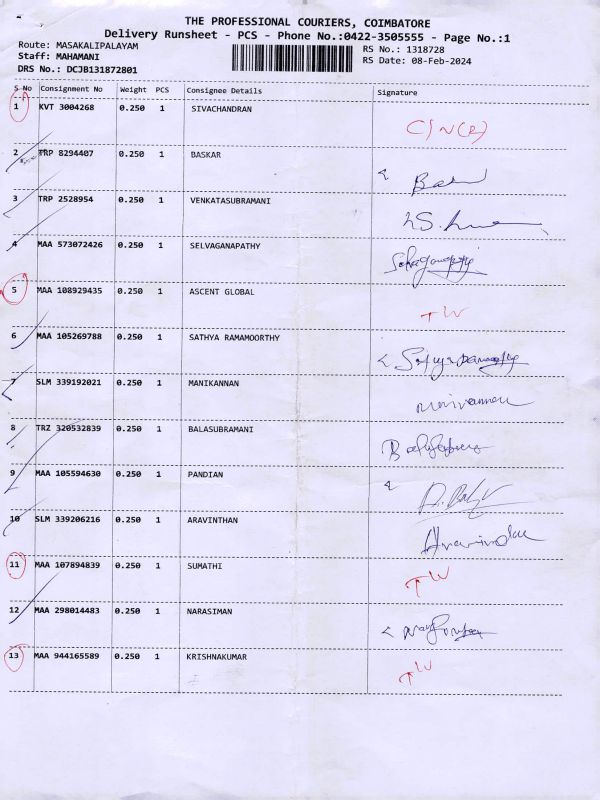 THE PROFESSIONAL COURIERS, COIMBATORE
Delivery Runsheet - PCS - Phone No.:0422-3505555 - Page No.:1
Route: MASAKALIPALAYAM RS No.: 1318728
Staff: MAHAMANI RS Date: 08-Feb-2024
DRS No.: DCJB131872801
S No Consignment No Weight PCS Consignee Details Signature
1 KVT 3004268 0.250 1 SIVACHANDRAN
2 TRP 8294407 0.250 1 BASKAR
3 TRP 2528954 0.250 1 VENKATASUBRAMANI
4 MAA 573072426 0.250 1 SELVAGANAPATHY
5 MAA 108929435 0.250 1 ASCENT GLOBAL
6 MAA 105269788 0.250 1 SATHYA RAMAMOORTHY
7 SLM 339192021 0.250 1 MANIKANNAN
8 TRZ 320532839 0.250 1 BALASUBRAMANI
9 MAA 105594630 0.250 1 PANDIAN
10 SLM 339206216 0.250 1 ARAVINTHAN
11 MAA 107894839 0.250 1 SUMATHI
12 MAA 298014483 0.250 1 NARASIMAN
13 MAA 944165589 0.250 1 KRISHNAKUMAR